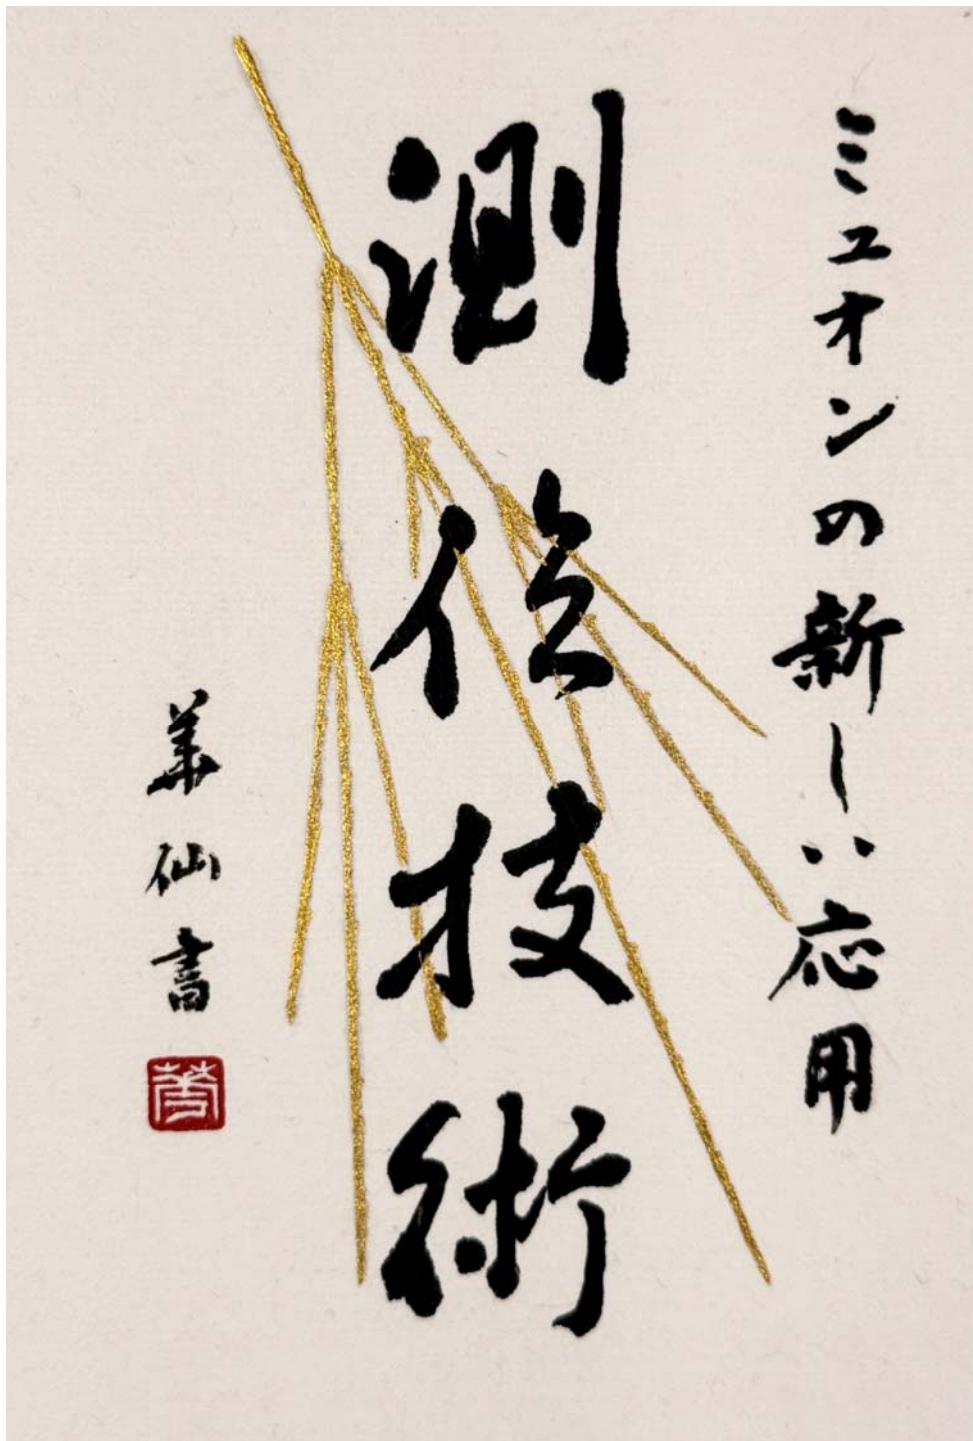 ミュオンの新しい応用
測位技術
華仙書